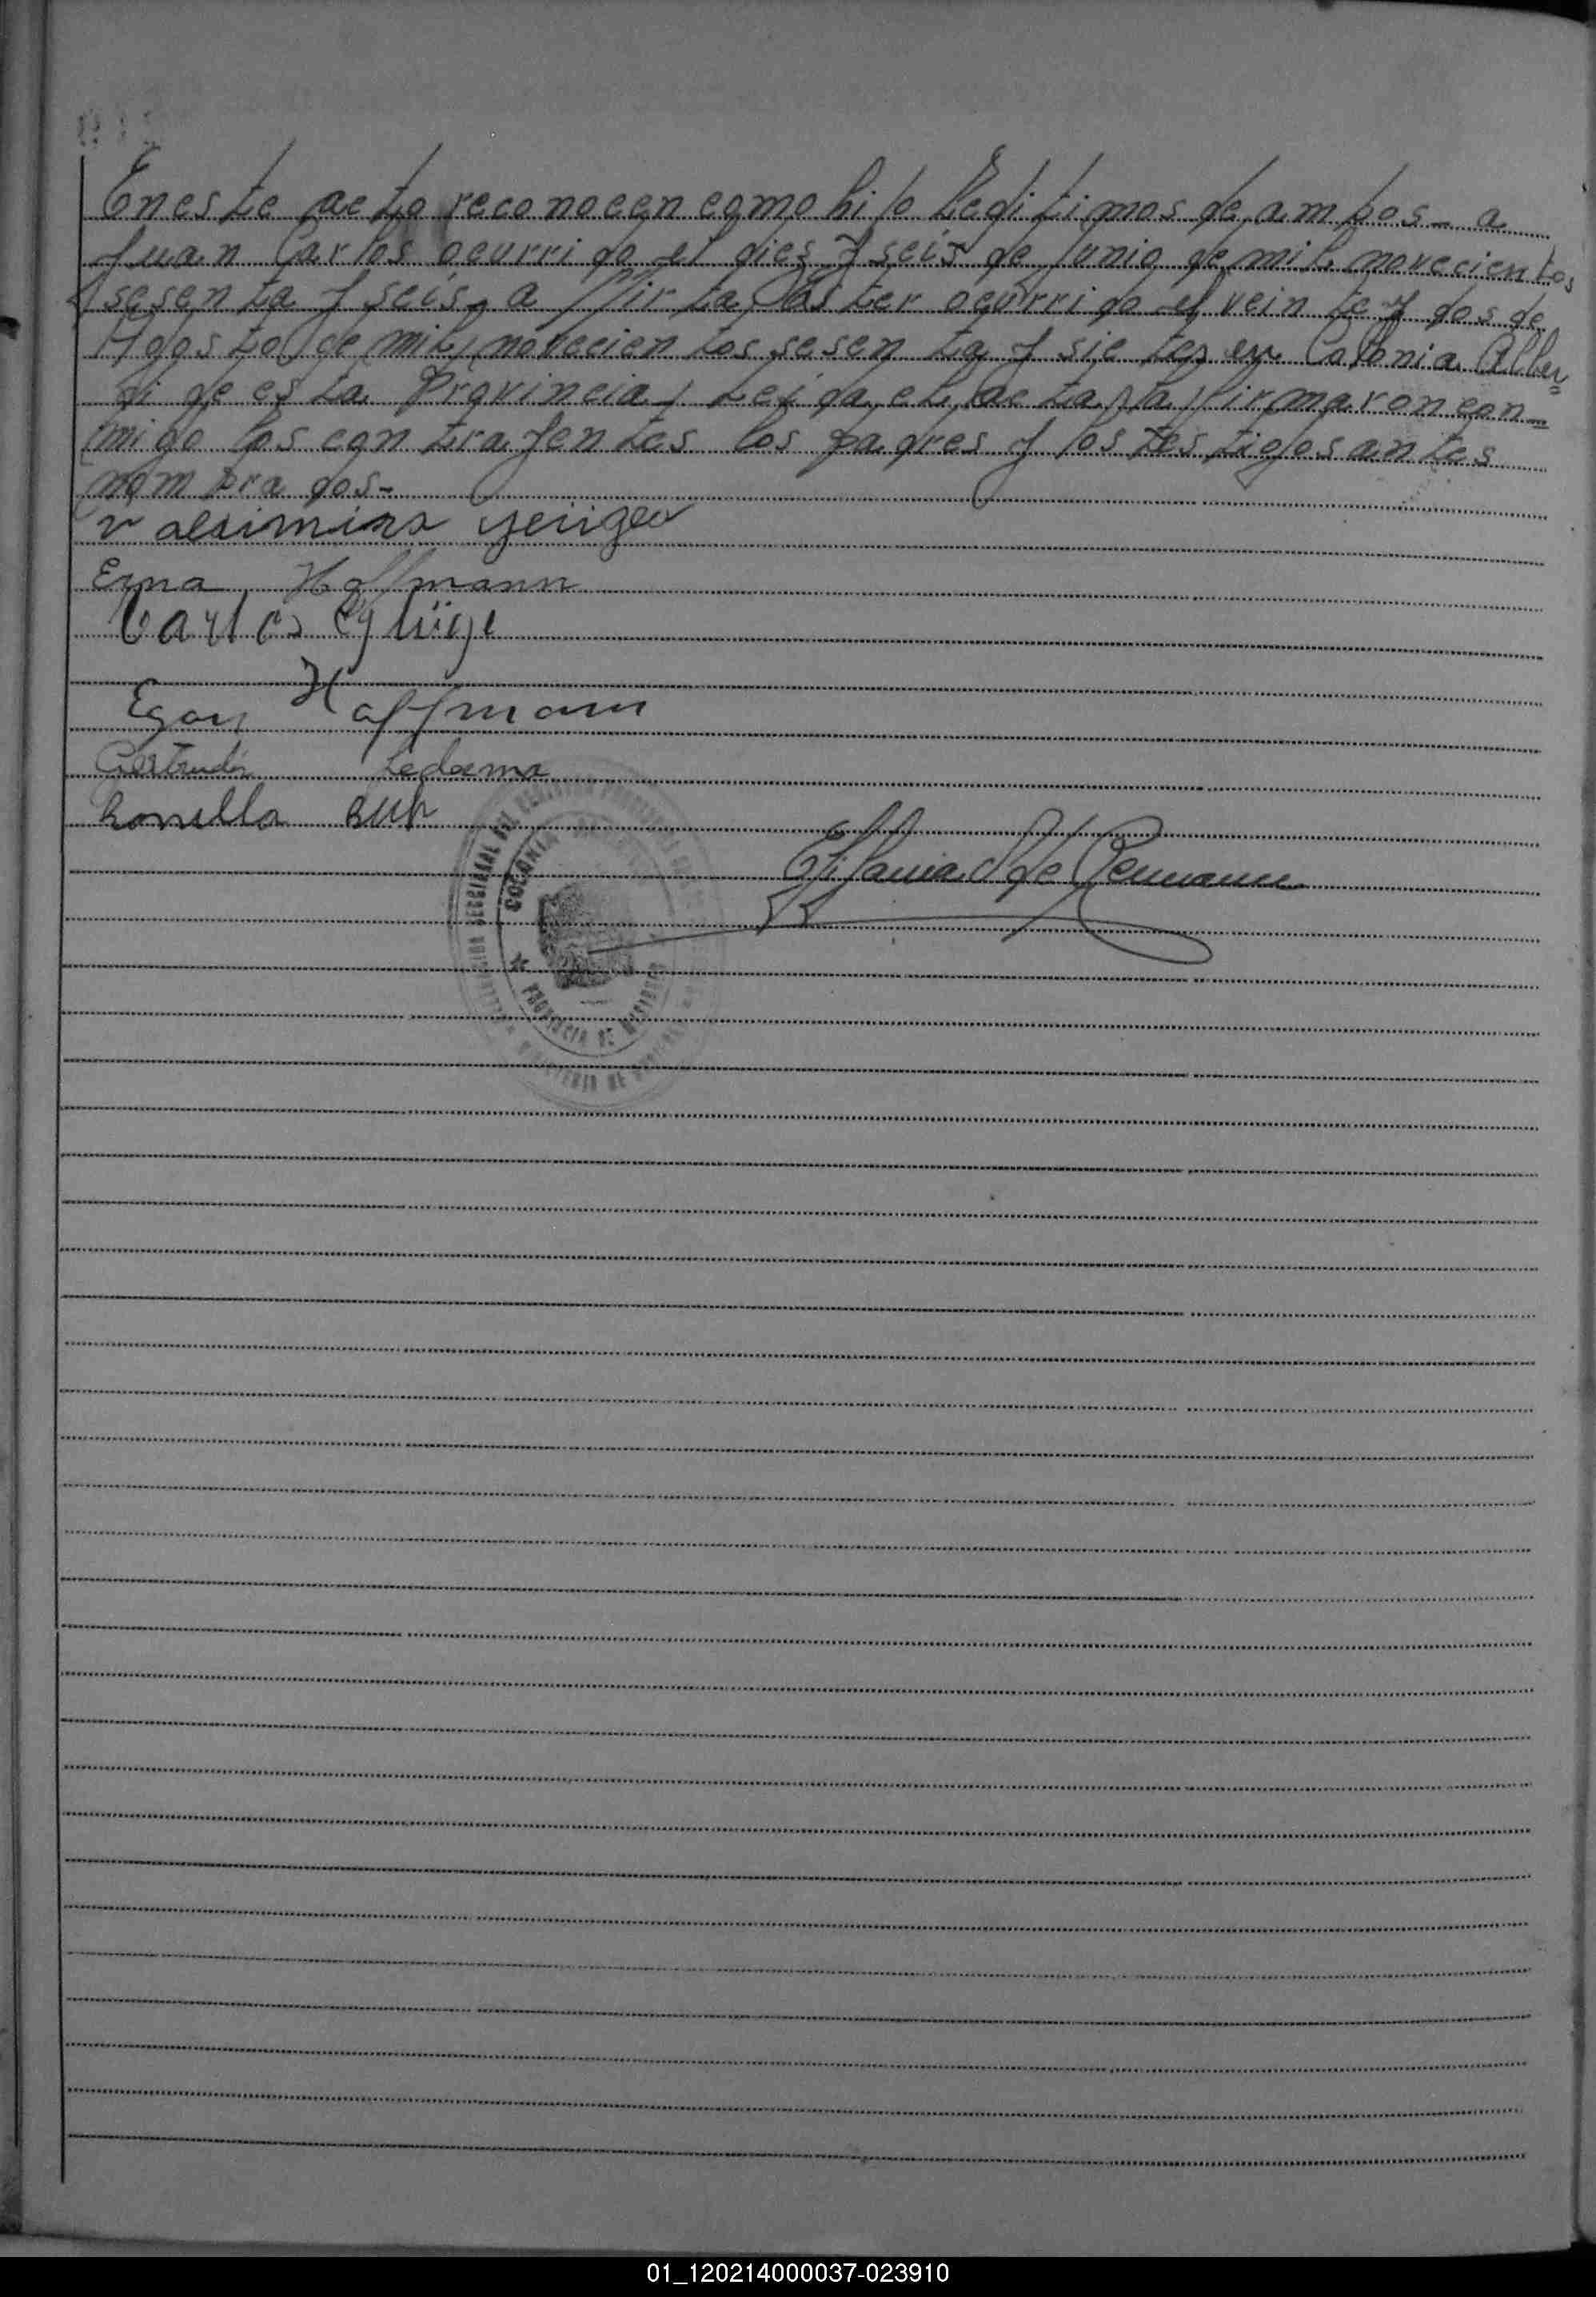 En este acto reconocen como hijo Legitimos de ambos - a
Juan Carlos ocurrido el diez y seis de Junio de mil novecientos
sesenta y seis, a Mirta Ester ocurrido el veinte y dos de
Agosto de mil novecientos sesenta y siete, en Colonia Alber
di de esta Provincia, Leida el acta, la firmaron con-
migo los contrayentes los padres y los testigos antes
nombrados-
Erna Hoffmann
Carlos
Egon Hoffmann
Gertrudis Ledesma
COLONIA
PROVINCIA DE MISIONES
MINISTERIO DE
01_120214000037-023910